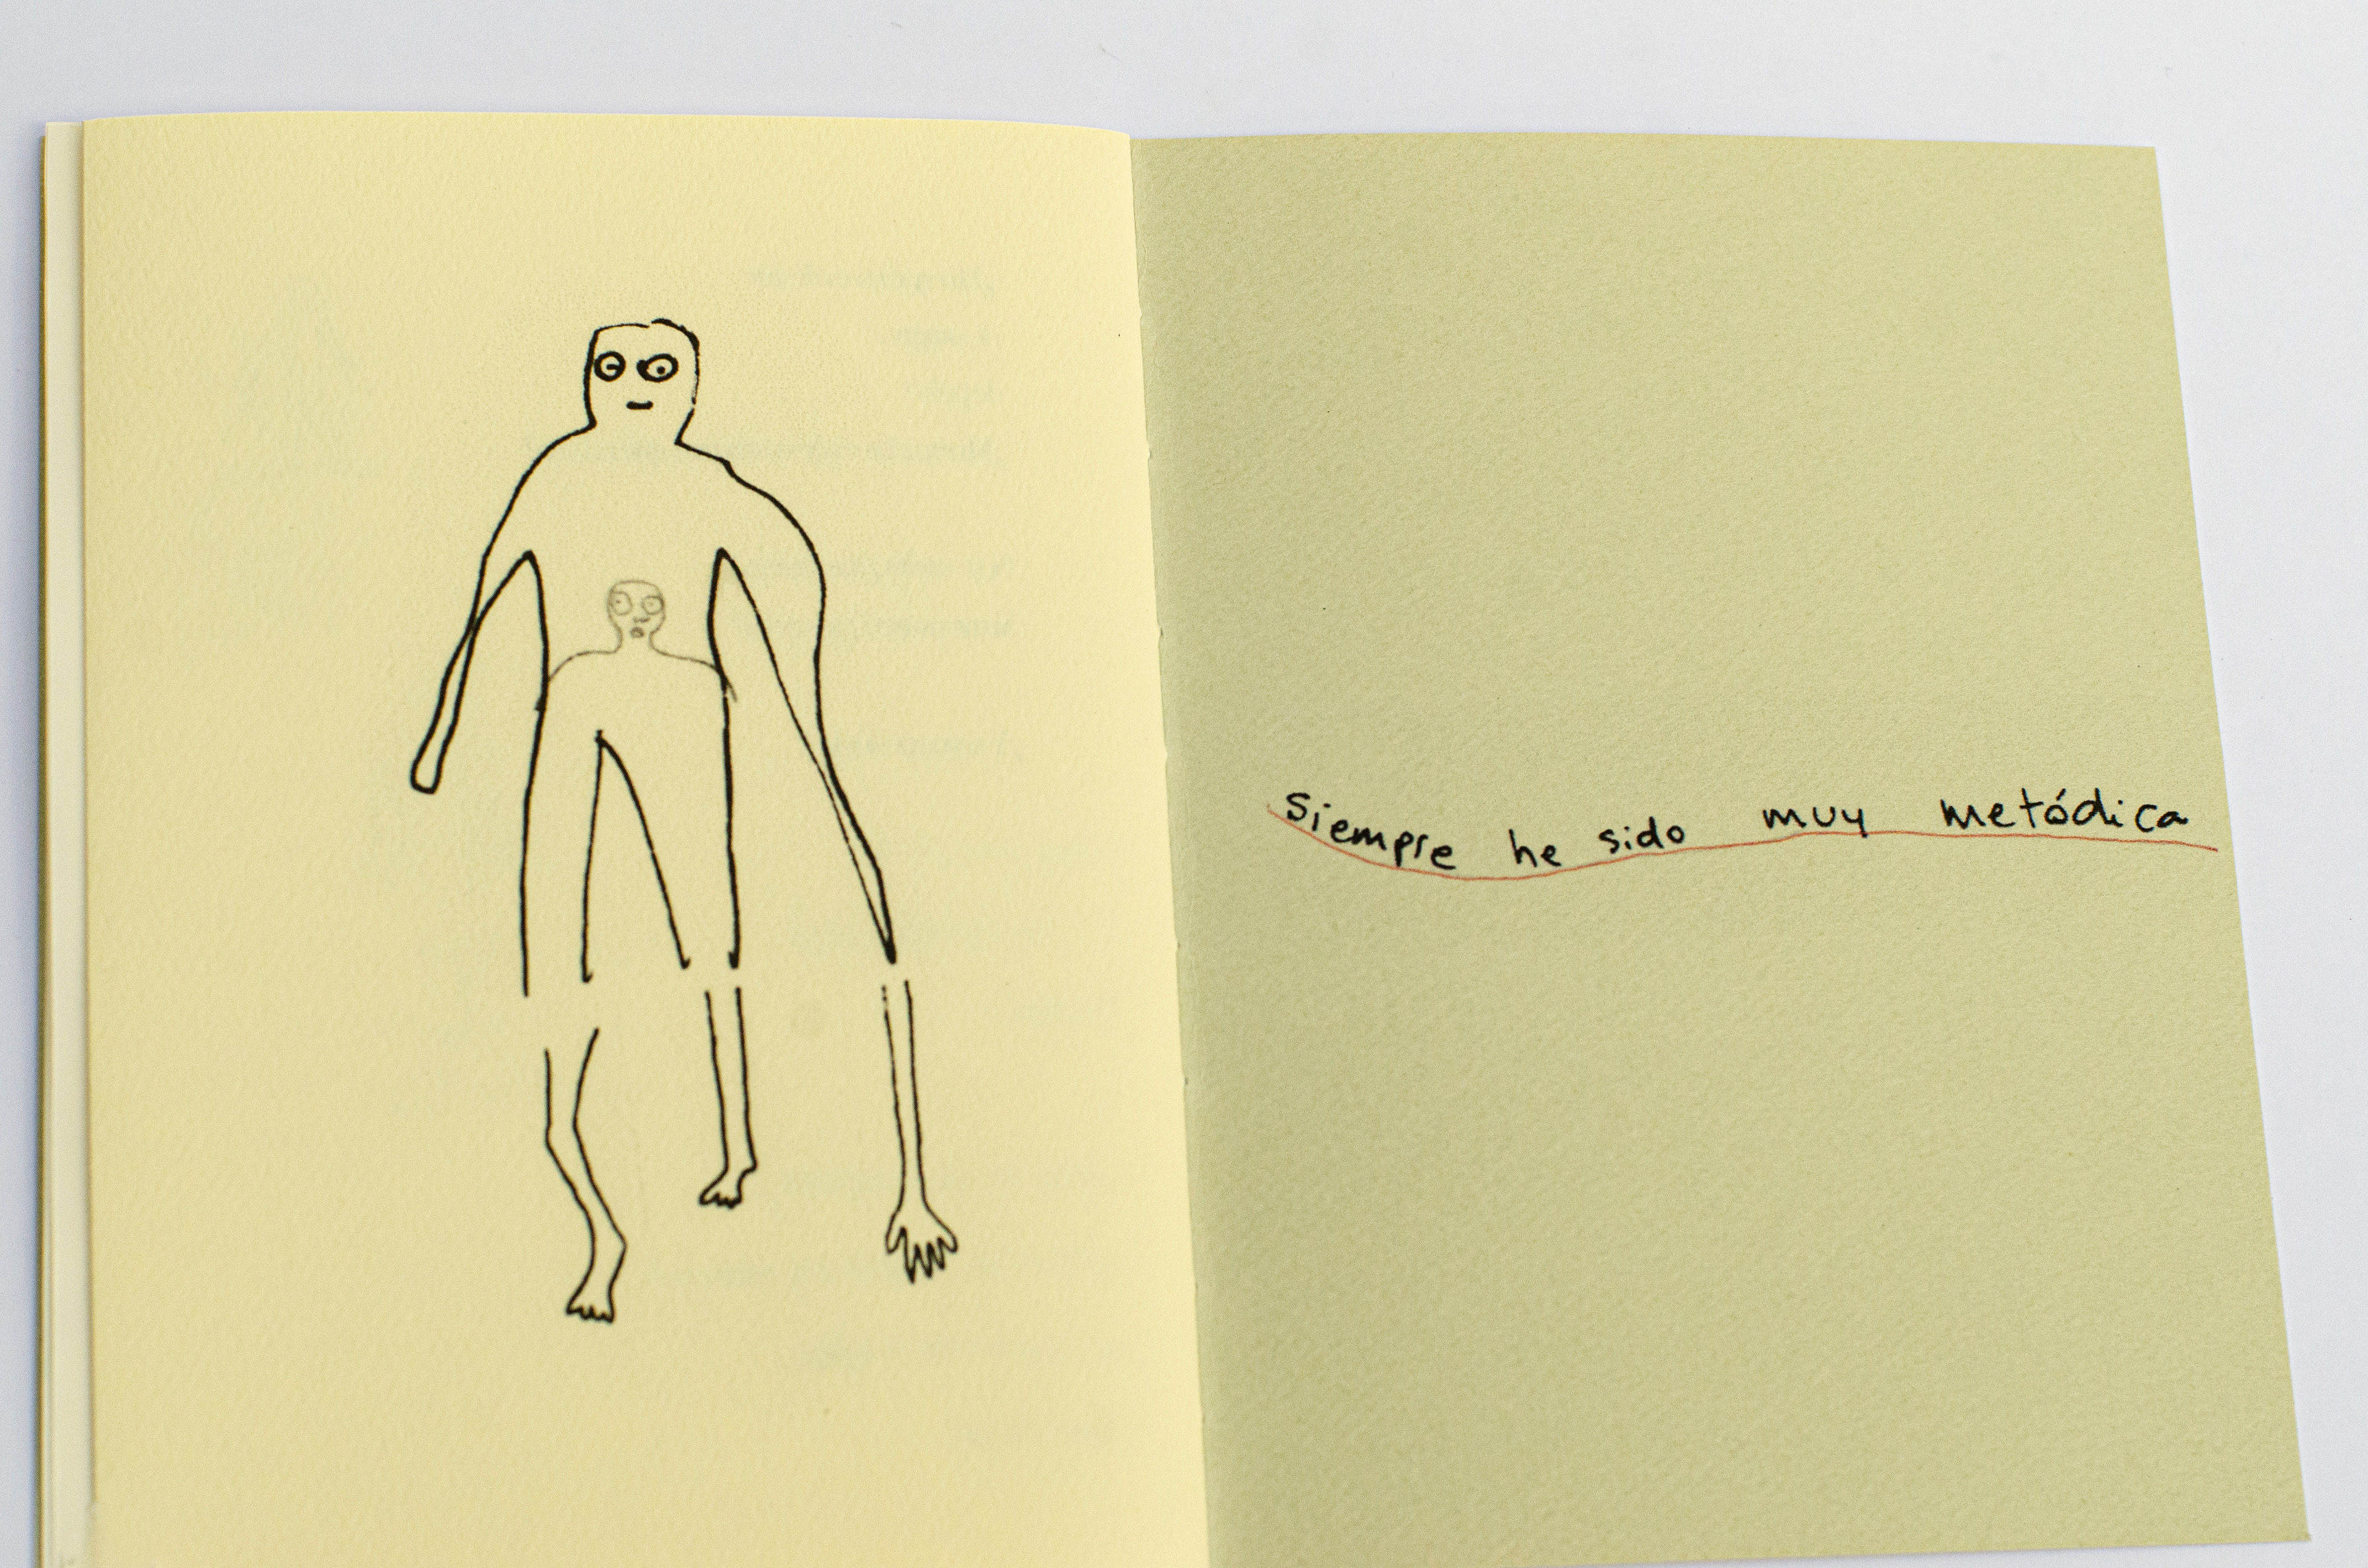 Siempre he sido muy metódica